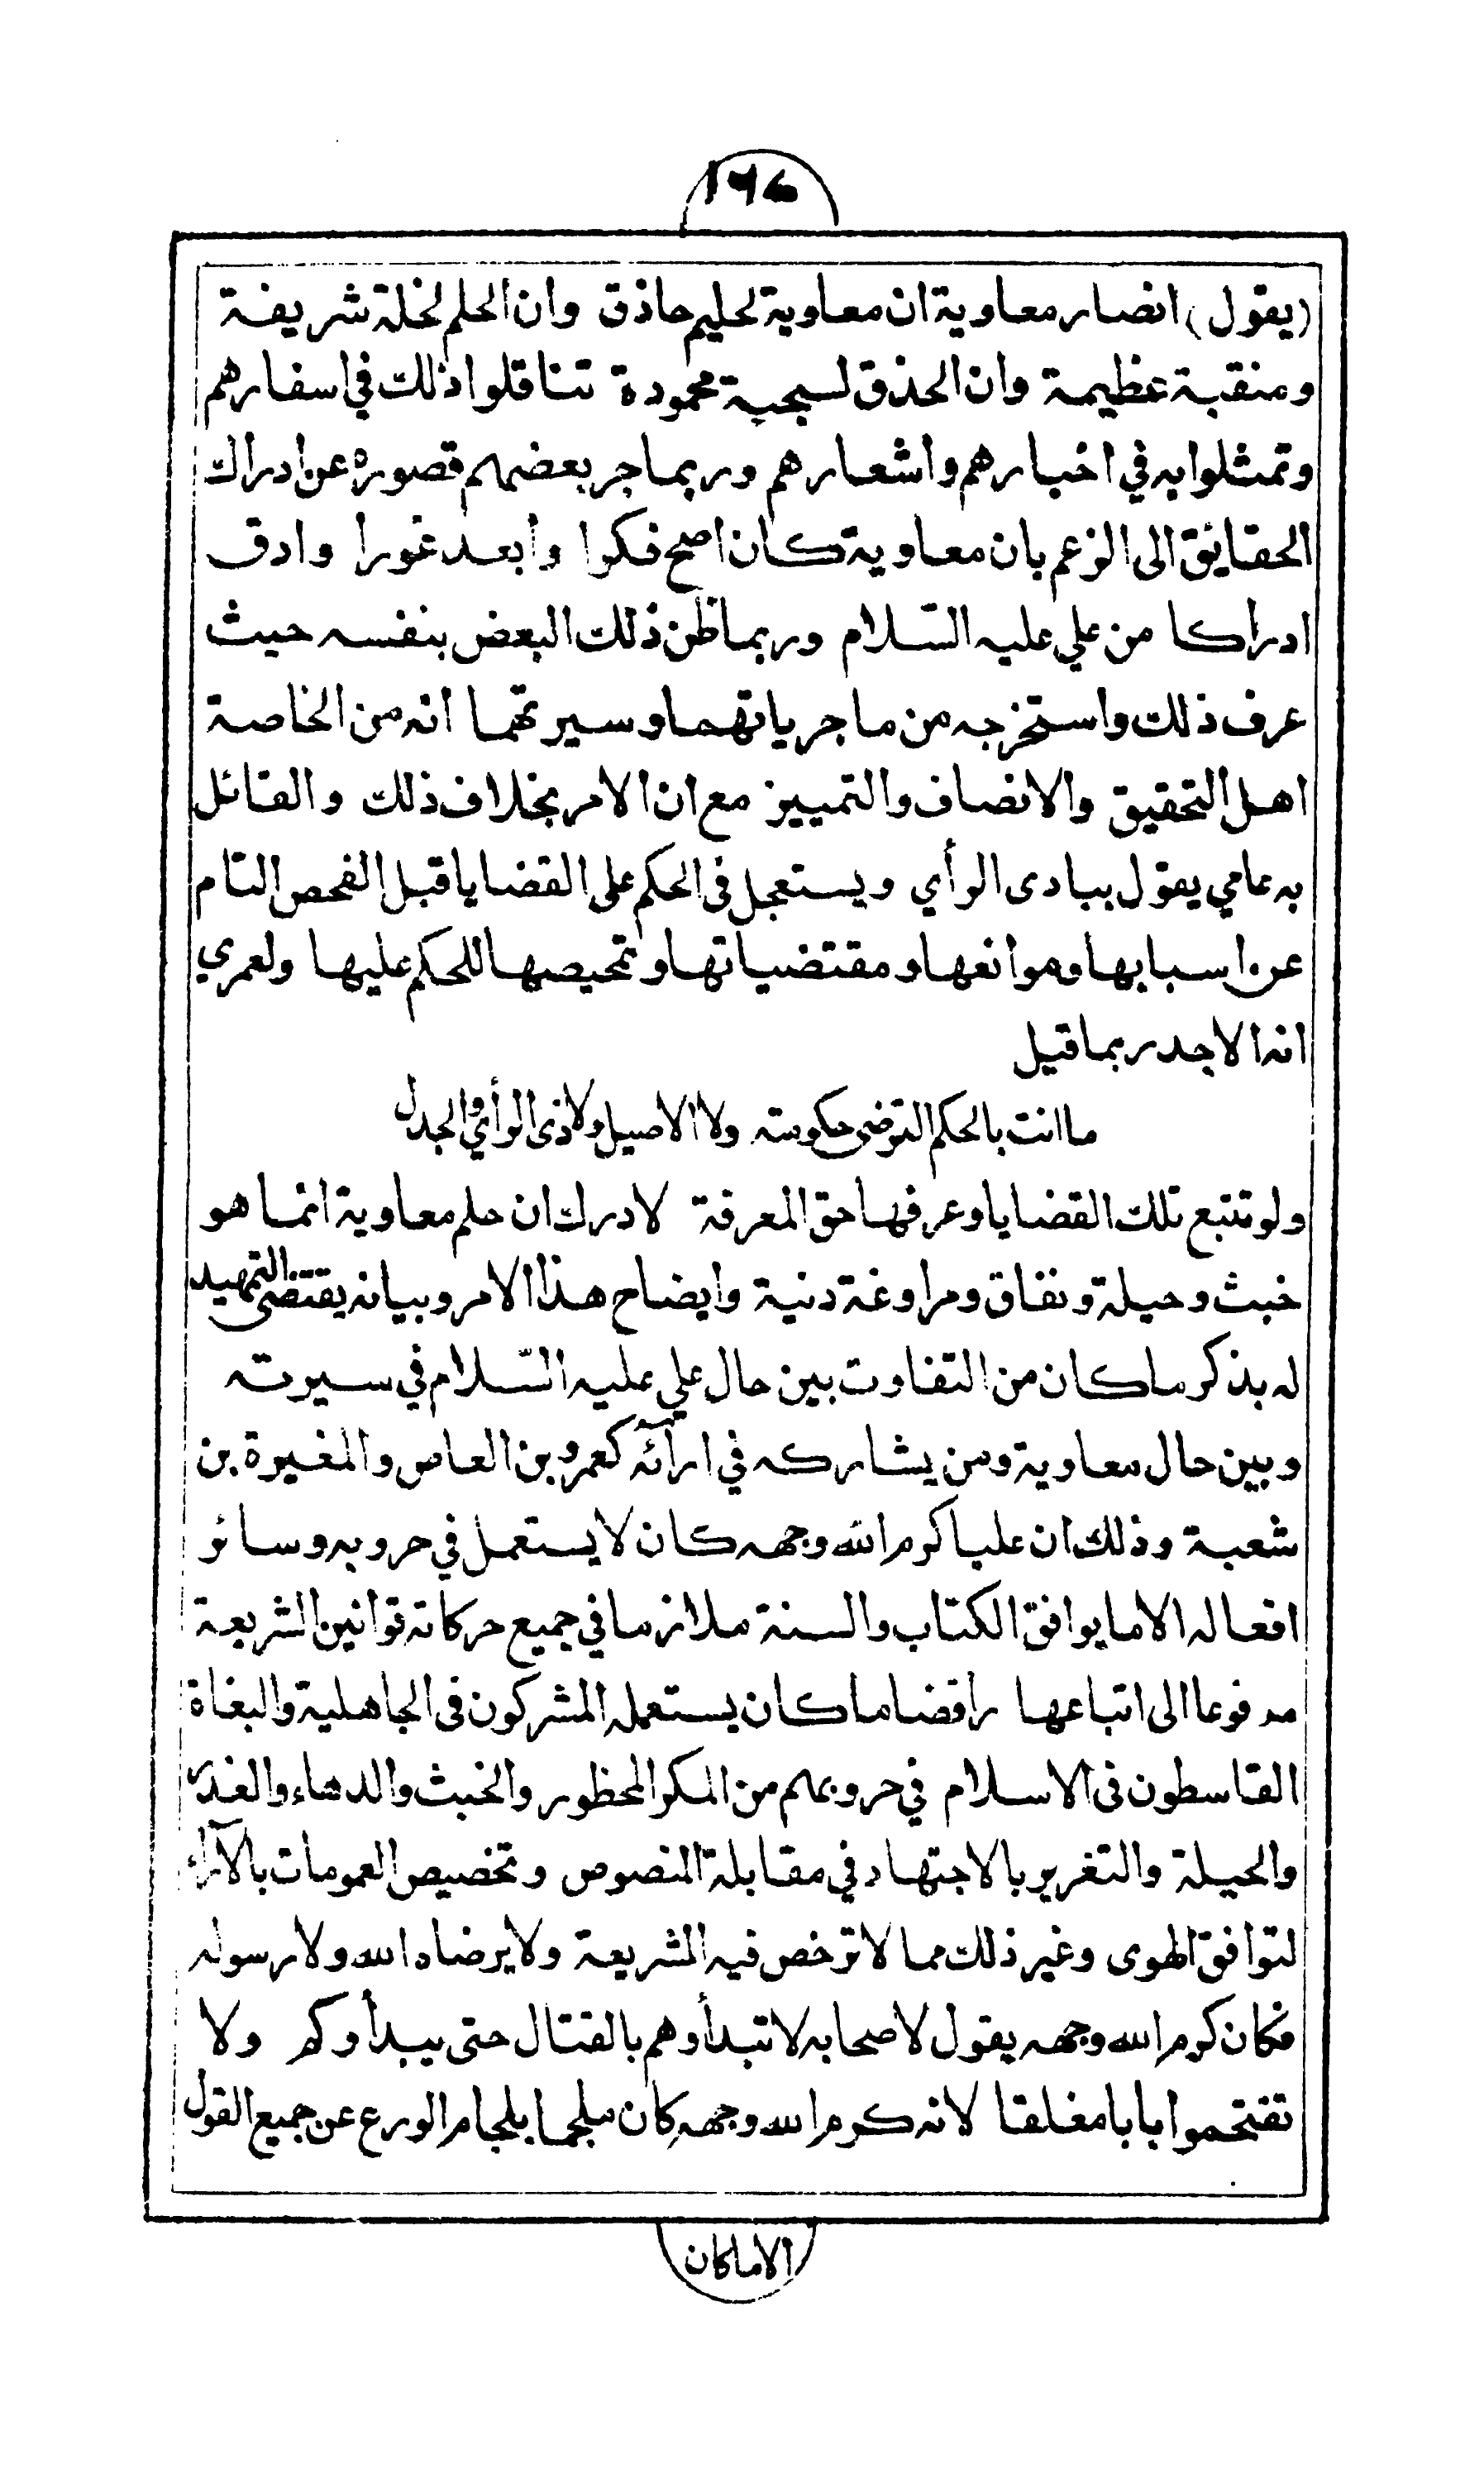 ١٩٤
(يقول) انصار معاوية ان معاوية لحليم حاذق وان الحلم لخلة شريفة
ومنقبة عظيمة وان الحذق لسجية محمودة تناقلوا ذلك في اسفارهم
وتمثلوا به في اخبارهم واشعارهم وربما جر بعضهم قصوره عن ادراك
الحقايق الى الزعم بان معاوية كان اصح فكرا وأبعد غورا وادق
ادراكا من علي عليه السّلام وربما ظن ذلك البعض بنفسه حيث
عرف ذلك واستخرجه من ماجرياتهما وسيرتهما انه من الخاصة
اهل التحقيق والانصاف والتمييز مع ان الامر بخلاف ذلك والقائل
به عامي يقول ببادى الرأي ويستعجل فى الحكم على القضايا قبل الفحص التام
عن اسبابها وموانعها ومقتضياتها وتمحيصها للحكم عليها ولعمري
انه الاجدر بما قيل
ما انت بالحكم الترضى حكومته ولا الاصيل ولا ذى الرأي والجدل
ولو تتبع تلك القضايا وعرفها حق المعرفة لادرك ان حلم معاوية انما هو
خبث وحيلة ونفاق ومراوغة دنية وايضاح هذا الامر وبيانه يقتضى التمهيد
له بذكر ما كان من التفاوت بين حال علي عليه السّلام في سيرته
وبين حال معاوية ومن يشاركه في ارآئه كعمرو بن العاص والمغيرة بن
شعبة وذلك ان عليا كرم الله وجهه كان لا يستعمل في حروبه وسائر
افعاله الا ما يوافق الكتاب والسنة ملازما في جميع حركاته قوانين الشريعة
مدفوعا الى اتباعها رافضا ما كان يستعمله المشركون فى الجاهلية والبغاة
القاسطون فى الاسلام في حروبهم من المكر المحظور والخبث والدهاء والغدر
والحيلة والتغرير بالاجتهاد في مقابلة النصوص وتخصيص العمومات بالآراء
لتوافق الهوى وغير ذلك مما لا ترخص فيه الشريعة ولا يرضاه الله ولا رسوله
فكان كرم الله وجهه يقول لاصحابه لا تبدأوهم بالقتال حتى يبدأوكم ولا
تفتحموا بابا مغلقا لانه كرم الله وجهه كان ملجما بلجام الورع عن جميع القول
الا ما كان